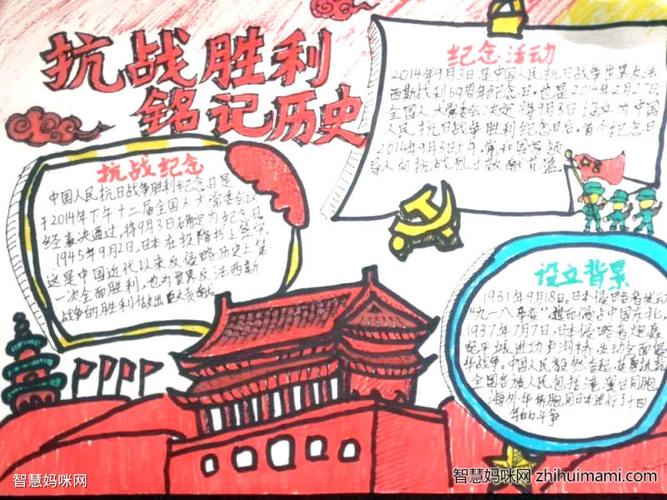 抗战胜利
铭记历史
纪念活动
2014年9月3日是中国人民抗日战争暨世界反法
西斯战利69周年纪念日,也是2014年2月27日
全国人大常委会决定将9月3日设立为中国
人民抗日战争胜利纪念日后,首个纪念日
2014年9月3日上午,党和国家领
导人向抗战烈士敬献花篮
抗战纪念
中国人民抗日战争胜利纪念日是
于2014年下午十二届全国人大常委会
经表决通过,将9月3日确定为纪念日
1945年9月2日,日本在投降书上签字
这是中国近代以来反侵略历史上第
一次全面胜利,也为世界反法西斯
战争的胜利做出巨大贡献
设立背景
1931年9月18日,日本侵略者发动
“九一八事变”
1937年7月7日,日本侵略者炮轰
宛平城进攻卢沟桥,发动全面侵
华战争。中国人民毅然奋起
全国各族人民包括港澳台同胞
海外华侨同胞同日本进行了十四
年的斗争
智慧妈咪网
智慧妈咪网 zhihuimami.com